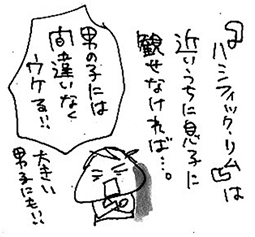 『パシフィック・リム』は
近いうちに息子に
観せなければ…。
男の子には
間違いなく
ウケる!!
大きい
男子にも!!